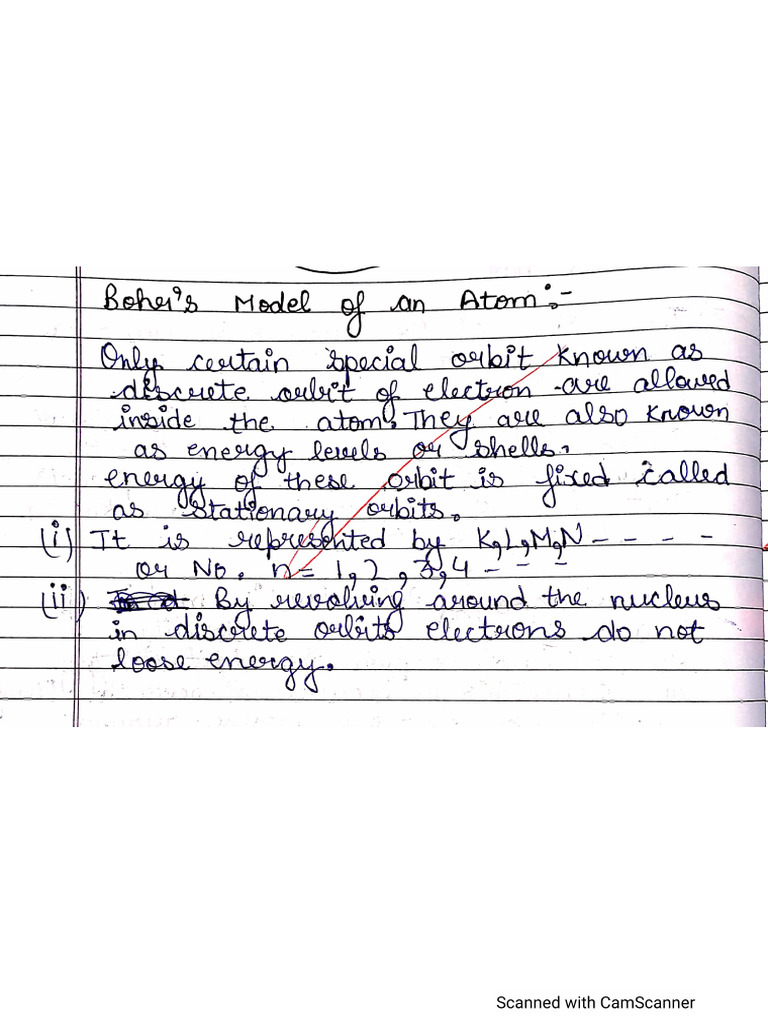 Boher's Model of an Atom:-
Only certain special orbit known as
discrete orbit of electron are allowed
inside the atom. They are also known
as energy levels or shells.
energy of these orbit is fixed called
as stationary orbits.
(i) It is represented by K,L,M,N - - - -
or No. n = 1,2,3,4 - - -
(ii) By revolving around the nucleus
in discrete orbits electrons do not
loose energy.
Scanned with CamScanner